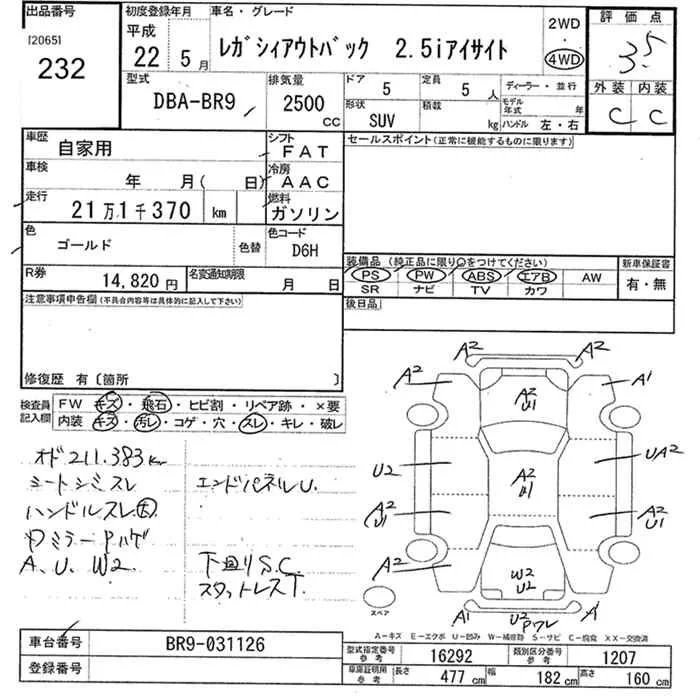 出品番号
[20651
232
初度登録年月
平成
22 5月
車名・グレード
レガシィアウトバック 2.5iアイサイト
2WD
・
4WD
評価点
3.5
外装 内装
C C
型式
DBA-BR9
排気量
2500 CC
ドア 5
定員 5人
形状 SUV
積載 kg
ディーラー・並行
モデル年式 年
ハンドル 左・右
車歴
自家用
シフト
FAT
車検
年 月( 日)
冷房
AAC
走行
21万1千370 km
燃料
ガソリン
色
ゴールド
色替
色コード
D6H
R券
14,820円
名変通知期限
月 日
セールスポイント(正常に機能するものに限ります)
装備品(純正品に限り○をつけてください)
PS PW ABS エアB AW
SR ナビ TV カワ
新車保証書
有・無
後日品
注意事項申告欄(不具合内容等は具体的に記入して下さい)
修復歴 有〔箇所 〕
検査員記入欄
FW キズ・飛石・ヒビ割・リペア跡・×要
内装 キズ・汚レ・コゲ・穴・スレ・キレ・破レ
オド211.383km
シートシミスレ
ハンドルスレ大
ワミラーPハゲ
A、U、W2
エンドパネルU.
下回りS.C.
スタットレスT
A2 A2
A2 A2 U1 A1
U2 A2 U1 UA2
A2 U1 A2 U1
A2 W2 U2
スペア A1 U2 Pワレ A1
A-キズ E-エクボ U-凹み W-補修跡 S-サビ C-腐食 XX-交換済
車台番号
BR9-031126
登録番号
型式指定番号 参考
16292
類別区分番号 参考
1207
車庫証明用 参考
長さ 477 cm
幅 182 cm
高さ 160 cm